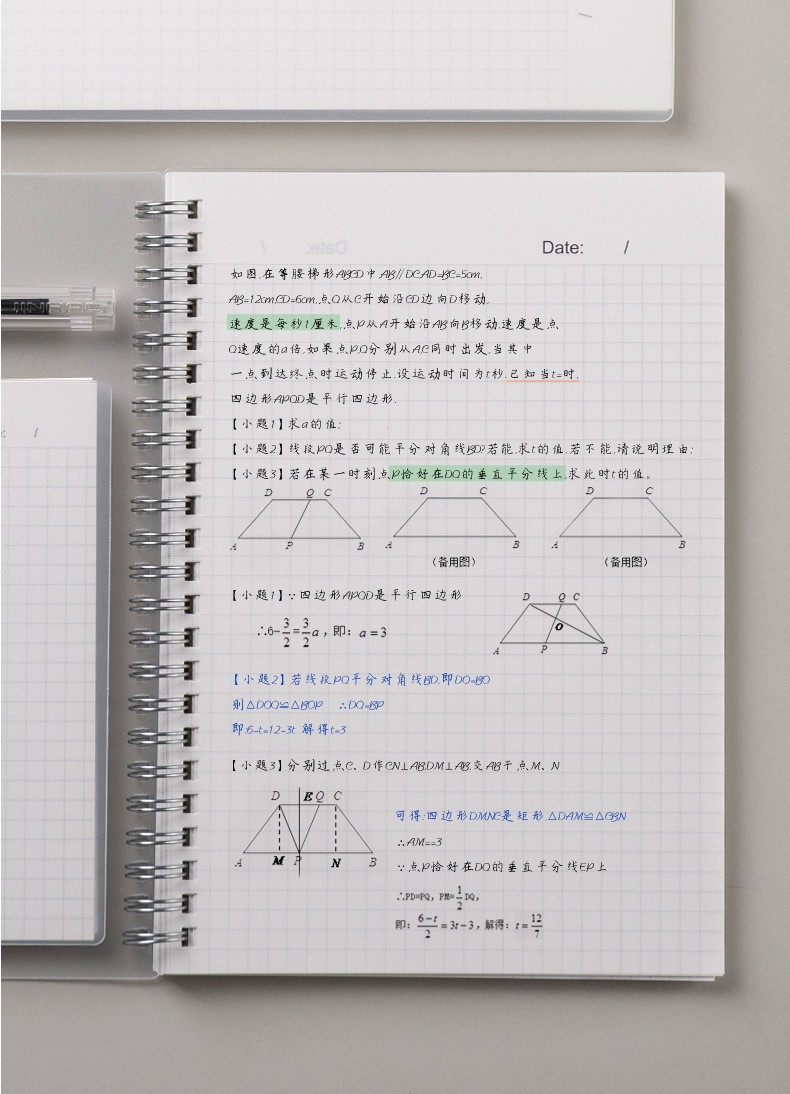 Date: /
如图,在等腰梯形ABCD中,AB∥DC,AD=BC=5cm,
AB=12cm,CD=6cm,点Q从C开始沿CD边向D移动,
速度是每秒1厘米,点P从A开始沿AB向B移动,速度是点
Q速度的a倍,如果点P,Q分别从A,C同时出发,当其中
一点到达终点时运动停止.设运动时间为t秒.已知当t=时,
四边形APQD是平行四边形.
【小题1】求a的值;
【小题2】线段PQ是否可能平分对角线BD?若能,求t的值,若不能,请说明理由;
【小题3】若在某一时刻点P恰好在DQ的垂直平分线上,求此时t的值。
D Q C
A P B
D C
A B
(备用图)
D C
A B
(备用图)
【小题1】∵四边形APQD是平行四边形
∴6-3/2=3/2a,即:a=3
D Q C
O
A P B
【小题2】若线段PQ平分对角线BD,即DO=BO
则△DOQ≌△BOP ∴DQ=BP
即:6-t=12-3t 解得t=3
【小题3】分别过点C、D作CN⊥AB,DM⊥AB,交AB于点M、N
D E Q C
A M P N B
可得:四边形DMNC是矩形,△DAM≌△CBN
∴AM==3
∵点P恰好在DQ的垂直平分线EP上
∴PD=PQ,PM=1/2DQ,
即:6-t/2=3t-3,解得:t=12/7